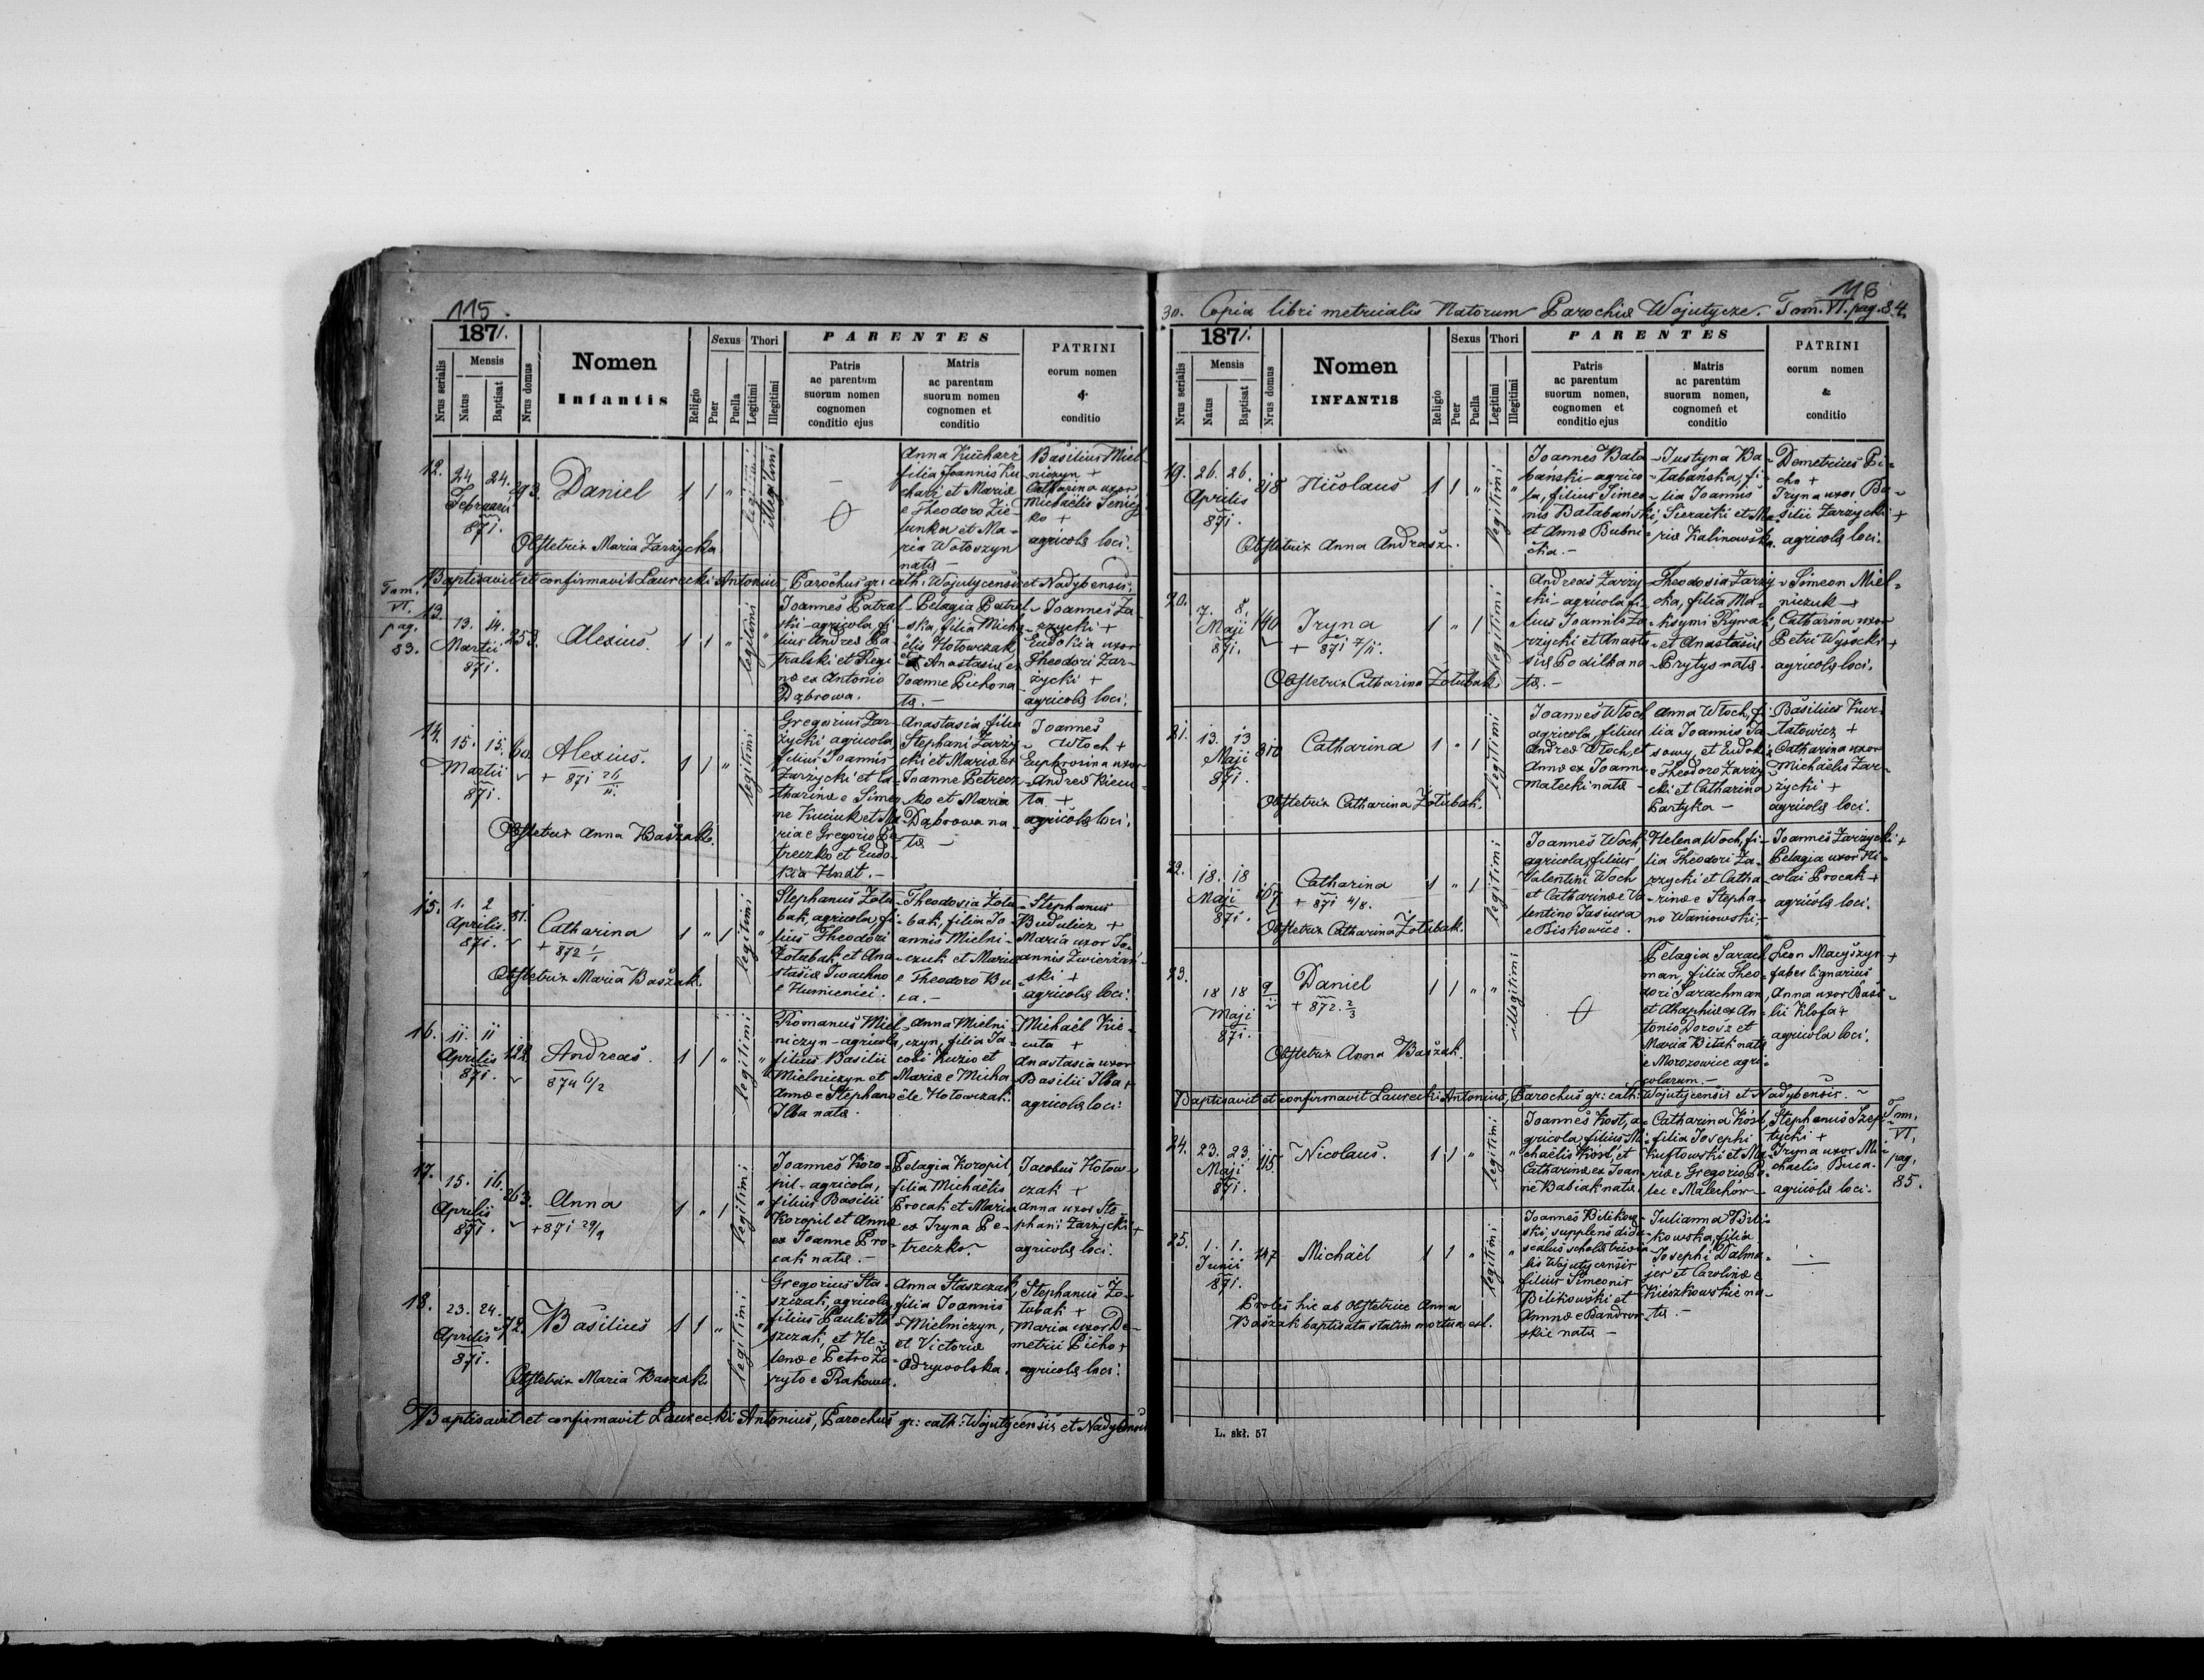 115.
1871.
Nrus serialis
Mensis
Natus
Baptisat
Nrus domus
Nomen
Infantis
Religio
Sexus
Puer
Puella
Thori
Legitimi
Illegitimi
PARENTES
Patris
ac parentum
suorum nomen
cognomen
conditio ejus
Matris
ac parentum
suorum nomen
cognomen et
conditio
PATRINI
eorum nomen
&
conditio
12.
24. 24.
Februarii
871.
Daniel
1 1 "
illegitimi
Obstetrix Maria Zarzycka
Anna Kucharz
filia Joannis Ku
charz et Mariæ
e Theodoro Zie-
lunka et Ma-
ria Wołoszyn
natæ -
Basilius Miel-
niczyn +
Catharina uxor
Michaëlis
ko +
agricolæ loci.
Baptisavit et confirmavit Laurecki Antonius Parochus gr: cath: Wojutycensis et Nadybensis.
Tom.
VI.
pag.
83.
13.
13. 14.
Martii
871.
253.
Alexius.
1 1 "
legitimi "
Joannes Patral-
ski - agricola, fi-
lius Andreæ Pa-
tralski et Regi-
næ ex Antonio
Dąbrowa.
Pelagia Patral-
ska, filia Micha-
ëlis Hołowczak
et Anastasiæ ex
Joanne Pichona
tæ. -
Joannes Za-
rzycki +
Eudokia uxor
Theodori Zar-
życki +
agricolæ loci.
14.
15. 15.
Martii
871.
60.
Alexius.
+ 871 26/11.
1 1 "
legitimi
Obstetrix Anna Baszak.
Gregorius Zar-
życki agricola
filius Joannis
Zarzycki et Ca-
tharinæ e Simeo-
ne Kuciuk et Ma-
ria e Gregorio Pe-
treczko et Eudo-
kia Hnat. -
Anastasia, filia
Stephani Zarzy-
cki et Mariæ ex
Joanne Petrecz-
ko et Maria
Dąbrowa na-
tæ -
Joannes
Włoch +
Euphrosina uxor
Andreæ Kiecu-
ta +
agricolæ loci.
15.
1. 2
Aprilis
871.
81.
Catharina
+ 872 1/1
1 " 1
legitimi "
Obstetrix Maria Baszak.
Stephanus Żołu-
bak, agricola, fi-
lius Theodori
Żołubak et Ana-
stasiæ Iwachno
e Humieniec.
Theodosia Żołu-
bak, filia Jo-
annis Mielni-
czuk et Mariæ
e Theodoro Bu-
ca. -
Stephanus
Budulicz +
Maria uxor Jo-
annis Zwierżań-
ski +
agricolæ loci.
16.
11. 11
Aprilis
871.
122.
Andreas.
874 6/2
1 1 "
legitimi "
Romanus Miel-
niczyn - agricola,
filius Basilii
Mielniczyn et
Annæ e Stephano
Ilba natæ.
Anna Mielni-
czyn, filia Ja-
cobi Kuzio et
Mariæ e Micha-
ële Hołowczak.
Michaël Kie-
cuta +
Anastasia uxor
Basilii Ilba +
agricolæ loci.
17.
15. 16.
Aprilis
871.
263.
Anna
+ 871 29/9
1 " 1
legitimi "
Joannes Koro-
pil - agricola,
filius Basilii
Koropil et Annæ
ex Joanne Pro-
cak natæ -
Pelagia Koropil,
filia Michaëlis
Procak et Mariæ
ex Iryna Pe-
treczko. -
Jacobus Hołow-
czak +
Anna uxor Ste-
phani Zarzycki +
agricolæ loci.
18.
23. 24.
Aprilis
871.
72.
Basilius
1 1 "
legitimi "
Obstetrix Maria Baszak.
Gregorius Sta-
szczak, agricola,
filius Pauli Sta-
szczak, et He-
lenæ e Petro Zo-
ryło e Rakowa.
Anna Staszczak,
filia Joannis
Mielniczyn,
et Victoriæ
Odrzywolska.
Stephanus Żo-
łubak +
Maria uxor De-
metrii Picho +
agricolæ loci.
Baptisavit et confirmavit Laurecki Antonius, Parochus gr: cath: Wojutycensis et Nadybensis
116
30. Copia libri metricalis Natorum Parochiæ Wojutycze. Tom. VI. pag. 84.
1871.
Nrus serialis
Mensis
Natus
Baptisat
Nrus domus
Nomen
INFANTIS
Religio
Sexus
Puer
Puella
Thori
Legitimi
Illegitimi
PARENTES
Patris
ac parentum
suorum nomen,
cognomen et
conditio ejus
Matris
ac parentum
suorum nomen,
cognomen et
conditio
PATRINI
eorum nomen
&
conditio
19.
26. 26.
Aprilis
871.
218
Nicolaus
1 1 "
legitimi "
Obstetrix Anna Andrasz.
Joannes Bała-
bański - agrico-
la, filius Simeo-
nis Bałabański,
et Annæ Bubni-
cka. -
Justyna Ba-
łabańska, fi-
lia Joannis
Sieracki et Ma-
riæ Kalinowska.
Demetrius Pi-
cho +
Iryna uxor Ba-
silii Zarzycki +
agricolæ loci.
20.
7. 8.
Maji
871.
140
Iryna
+ 871 7/11.
1 " 1
legitimi "
Obstetrix Catharina Żołubak.
Andreas Zarzy-
cki - agricola, fi-
lius Joannis Za-
rzycki et Anasta-
siæ Podilkana
tæ. -
Theodosia Zarzy-
cka, filia Ma-
ksymi Rywak,
et Anastasiæ
Prytys natæ -
Simeon Miel-
niczuk +
Catharina uxor
Petri Wysocki +
agricolæ loci.
21.
13. 13
Maji
871.
310
Catharina
1 " 1
legitimi
Obstetrix Catharina Żołubak.
Joannes Włoch
agricola, filius
Andreæ Włoch, et
Annæ ex Joanne
Małecki natæ -
Anna Włoch, fi-
lia Joannis Ja-
sowy, et Eudokiæ
e Theodoro Zarzy-
cki et Catharina
Partyka -
Basilius Kur-
łatowicz +
Catharina uxor
Michaëlis Zar-
życki +
agricolæ loci.
22.
18. 18
Maji
871.
167
Catharina
+ 871 4/8.
1 " 1
legitimi
Obstetrix Catharina Żołubak.
Joannes Woch,
agricola, filius
Valentini Woch
et Catharinæ e Va-
lentino Jasiura
e Biskowice.
Helena Woch, fi-
lia Theodori Za-
rzycki et Catha-
rinæ e Stepha-
no Waniowski. -
Joannes Zarzycki +
Pelagia uxor Ni-
colai Procak +
agricolæ loci.
23.
18 18
Maji
871.
Daniel
+ 872. 2/3
1 1 " "
illegitimi
Obstetrix Anna Baszak.
Pelagia Sarach-
man, filia Theo-
dori Sarachman,
et Ahaphiæ ex An-
tonio Dorosz et
Maria Bilak natæ
e Morozowice agri-
colarum. -
Leon Macyszyn +
faber lignarius
Anna uxor Basi-
lii Klofa +
agricolæ loci.
Baptisavit et confirmavit Laurecki Antonius, Parochus gr: cath: Wojutycensis et Nadybensis. ~
Tom.
VI.
pag.
85.
24.
23. 23.
Maji
871.
115
Nicolaus.
1 1 "
legitimi "
Joannes Kost, a-
gricola, filius Mi-
chaëlis Kost, et
Catharinæ ex Joan-
ne Babiak natæ.
Catharina Kost,
filia Josephi
Kuftowski et Ma-
riæ e Gregorio Po-
lec e Malechów -
Stephanus Szep-
tycki +
Iryna uxor Mi-
chaëlis Buca.
agricolæ loci.
25.
1. 1.
Junii
871.
147
Michaël
1 1 "
legitimi "
Proles hic ab obstetrice Anna
Baszak baptisata statim mortua est.
Joannes Bilikow-
ski, supplens dida-
scalus scholæ trivia-
lis Wojutycensis
filius Simeonis
Bilikowski et
Annæ e Bandrow-
skie natæ -
Julianna Bili-
kowska, filia
Josephi Dalma-
jer et Carolinæ e
Kieszkowskie na-
tæ. -
L. skł. 57